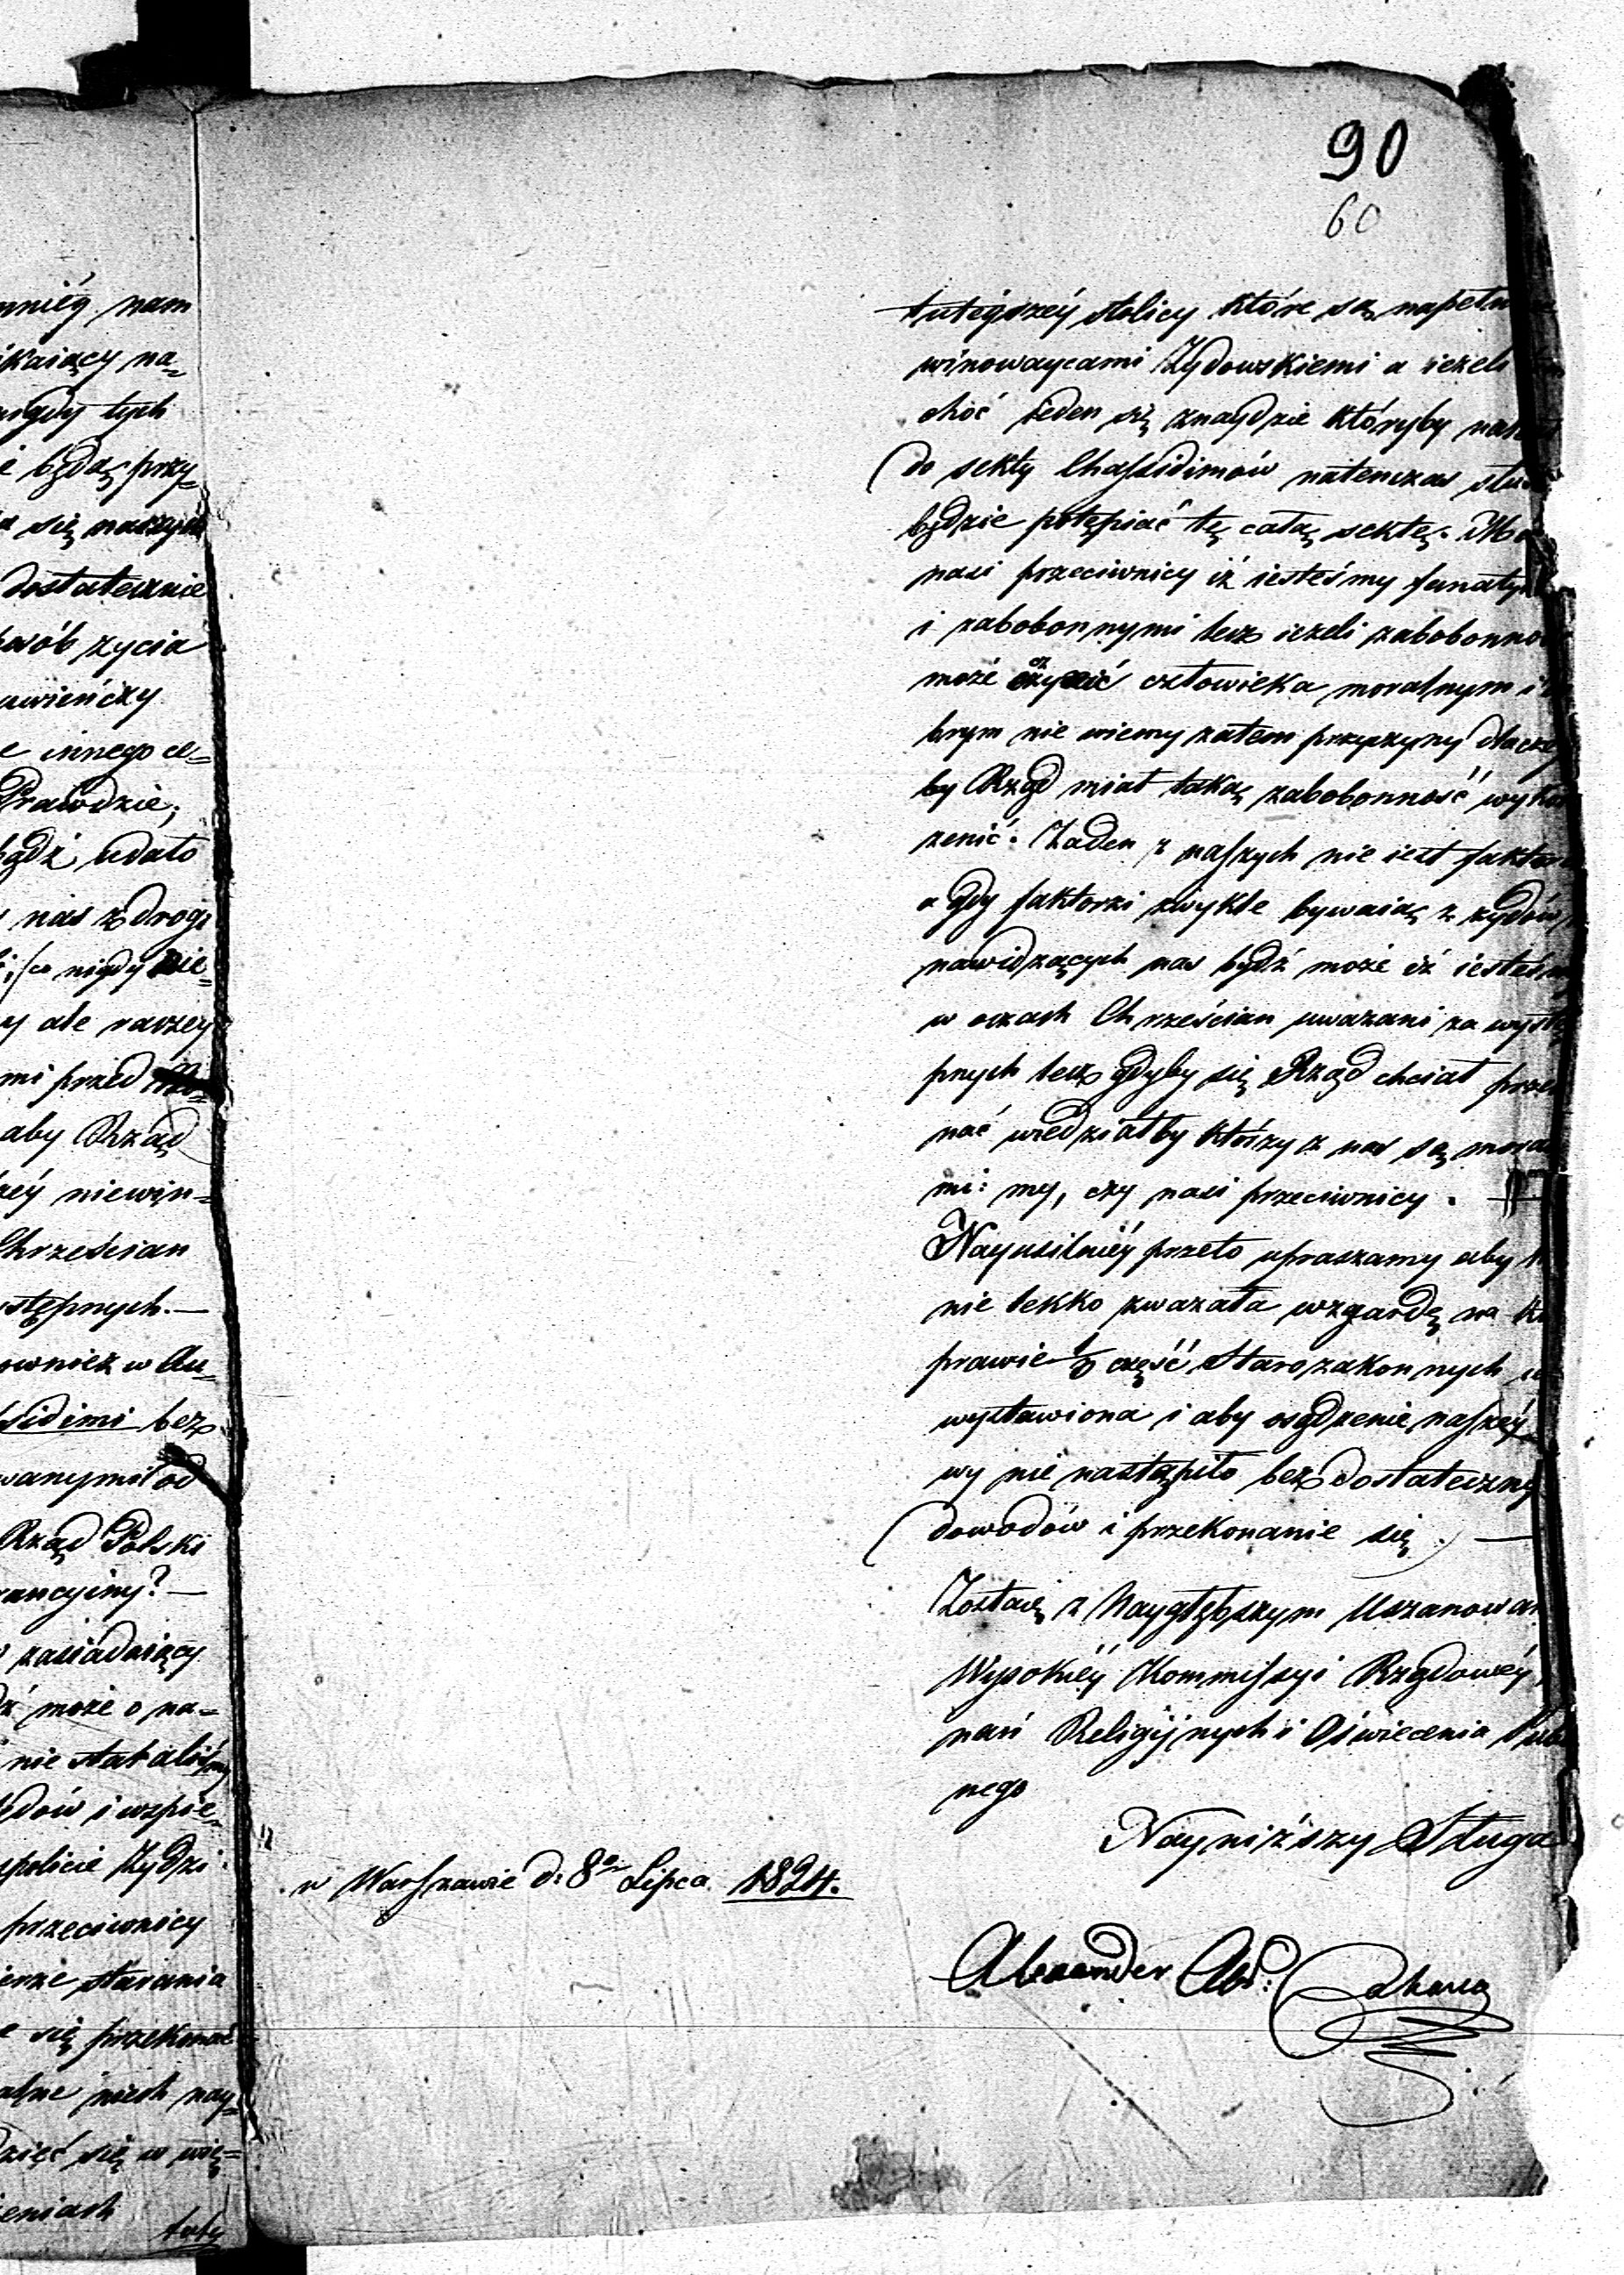 mniéy nam
ikaiący na=
nigdy tych
i będąc przy=
a się naszych
dostatecznie
posób zycia
uwieńczy
e innego ce=
Prawdzie;
bądź udało
nas z drogi
(co nigdy nie=
y ale raczey
mi przed
aby Rząd
zéy niewin=
Chrześcian
stępnych.—
ownież w Au=
sidimi bez
wanymi od
Rząd Polski
rancyiny?—
zasiadaiący
dź może o na=
nie starali
edów i wspie=
spolicie Zydzi
przeciwnicy
erze starania
e się przekonać
alne niech nay=
dzieć się w wię=
eniach
tutey
90
60
tutéyszéy stolicy które są napełn
winowaycami Zydowskiemi a ieżeli
choć ieden się znaydzie któryby
do sekty Chassidimów natenczas
będzie potępiać tę całą sektę.
nasi przeciwnicy iż iesteśmy fanaty
i zabobonnymi lecz ieżeli zabobonno
może czynić człowieka moralnym i
brym nie wiemy zatem przyczyny dlacze
by Rząd miał taką zabobonność wyko
zenić. Zaden z naszych nie iest faktor
a gdy faktorzi zwykle bywaią z zydów
nawidzących nas bydź może iż iesteśm
w oczach Chrześcian uwazani za wystę
pnych lecz gdyby się Rząd chciał prze
nać wiedziałby którzy z nas są mora
mi: my, czy nasi przeciwnicy.
Nayusilniéy przeto upraszamy aby
nie lekko zwazała wzgardę na
prawie część Starozakonnych
wystawiona i aby osądzenie naszéy
wy nie nastąpiło bez dostateczny
dowodów i przekonanie się. —
Zostaię z Naygłębszym Uszanowan
Wysokiéy Kommissyi Rządowéy
nań Religijnych i Oświecenia Pub
nego
Nayniższy Sługa
w Warszawie d: 8o Lipca 1824.
Alexander